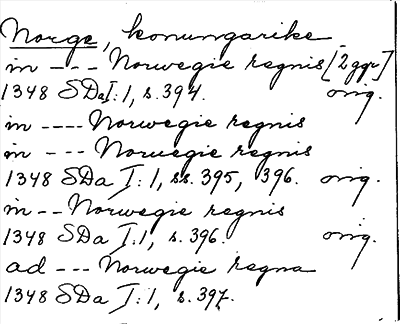 Norge, konungarike
in --- Norwegie regnis [2 ggr]
1348 SDa I:1, s. 394. orig.
in ---- Norwegie regnis
in --- Noruegie regnis
1348 SDa I:1, ss. 395, 396. orig.
in -- Norwegie regnis
1348 SDa I:1, s. 396. orig.
ad --- Norwegie regna
1348 SDa I:1, s. 397.